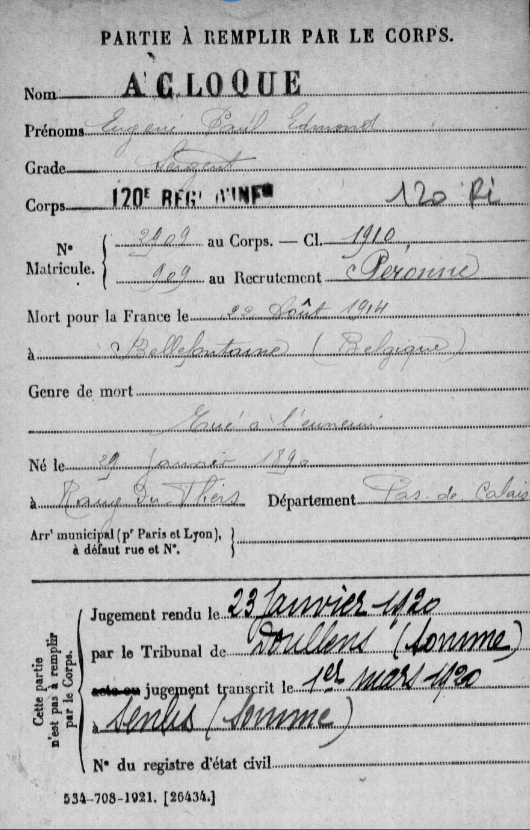 PARTIE À REMPLIR PAR LE CORPS.
Nom AGLOQUE
Prénoms Eugène Paul Edmond
Grade Sergent
Corps 120E REGt D'INFie 120 RI
N° Matricule. 2909 au Corps. — Cl. 1910
909 au Recrutement Péronne
Mort pour la France le 22 Août 1914
à Bellefontaine (Belgique)
Genre de mort
Tué à l'ennemi
Né le 29 Janvier 1890
à Département Pas-de-Calais
Arrt municipal (pr Paris et Lyon),
à défaut rue et N°.
Cette partie n'est pas à remplir par le Corps.
Jugement rendu le 23 Janvier 1920
par le Tribunal de Doullens (Somme)
acte ou jugement transcrit le 1er mars 1920
à Senlis (Somme)
N° du registre d'état civil
534-708-1921. [26434.]